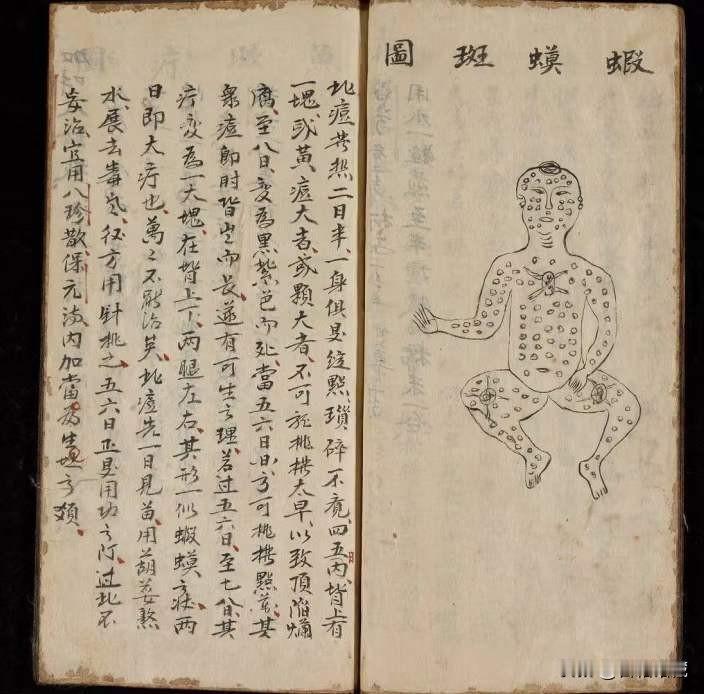 蝦蟆斑圖
此痘發熱、二日半、一身俱是綻點瑣碎不竟、四五內、背上有
一塊或黃、痘大者、或顆大者、不可挑撥太早、以致頂陷爛
腐、至八日、變為黑紫色而死、當五六日、方可挑撥點藥、其
衆痘即時皆出而長、遂有可生之理、若過五六日、至七八日其
疔變為一大塊、在背上下、兩腿左右、其形一似蝦蟆之狀、兩
日即大疔也、萬萬不能治矣、此痘先一日見苗、用葫荽熬
水、展去毒氣、後方用針挑之、五六日正是用功之、过此不
妄治、宜用八珍散、保元湯內加當為之類、